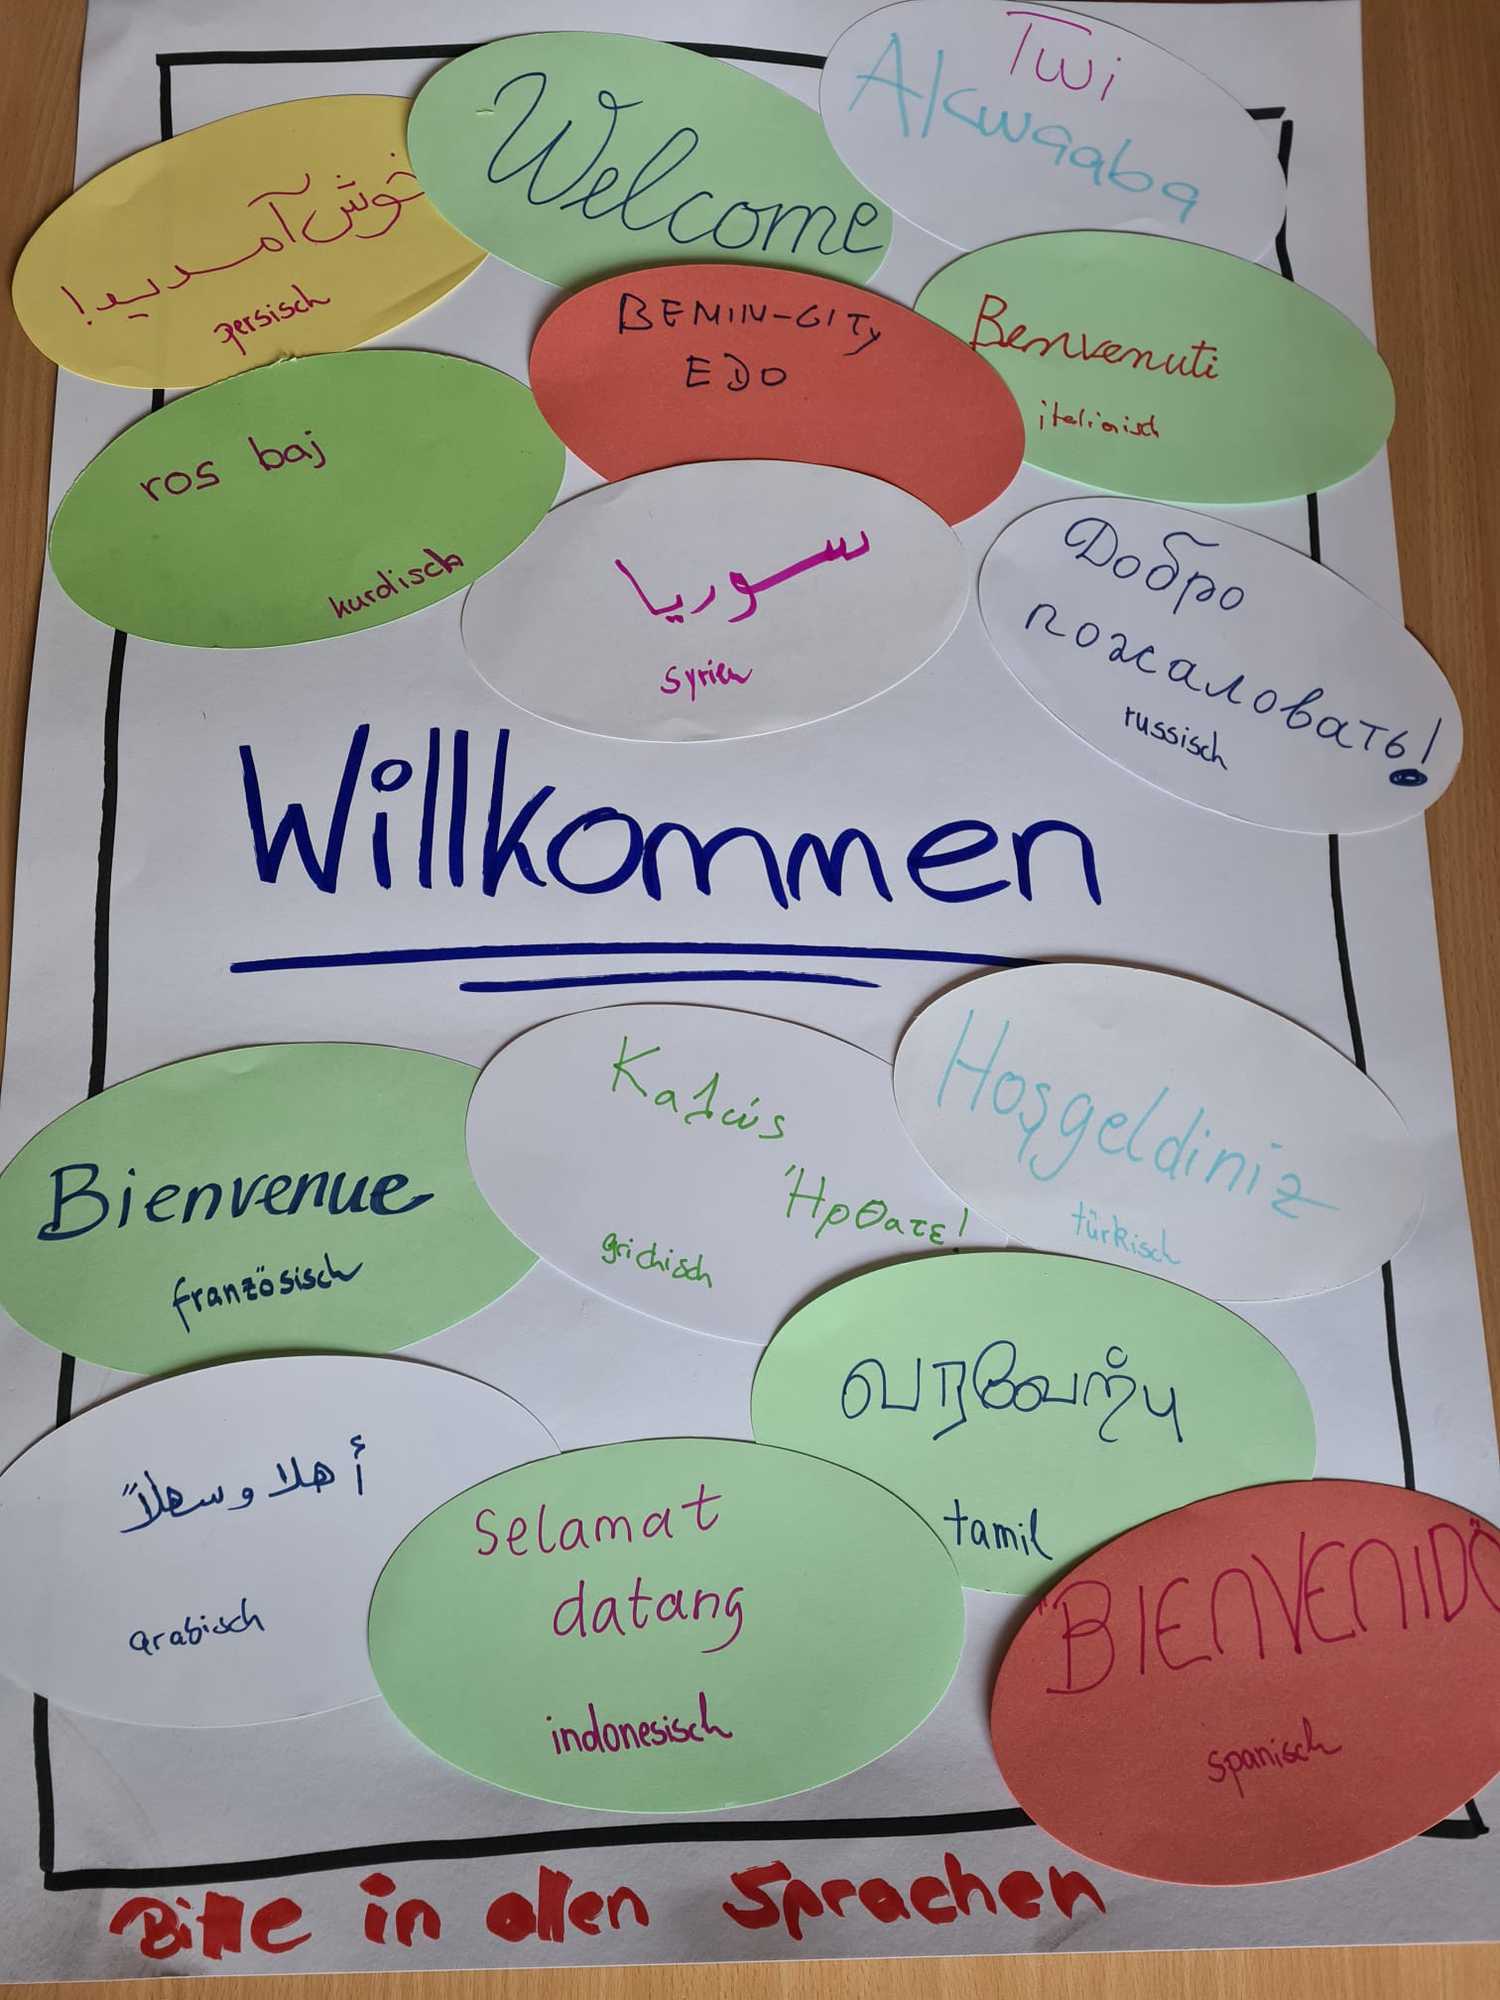 Twi
Akwaaba
Welcome
خوش آمدید!
persisch
BENIN-CITY
EDO
Benvenuti
italienisch
ros baj
kurdisch
سوريا
Syrien
Добро
пожаловать!
russisch
Willkommen
Καλώς
Ήρθατε!
grichisch
Hoşgeldiniz
türkisch
Bienvenue
französisch
வரவேற்பு
tamil
أهلا وسهلاً
arabisch
Selamat
datang
indonesisch
"BIENVENIDO"
spanisch
Bitte in allen Sprachen